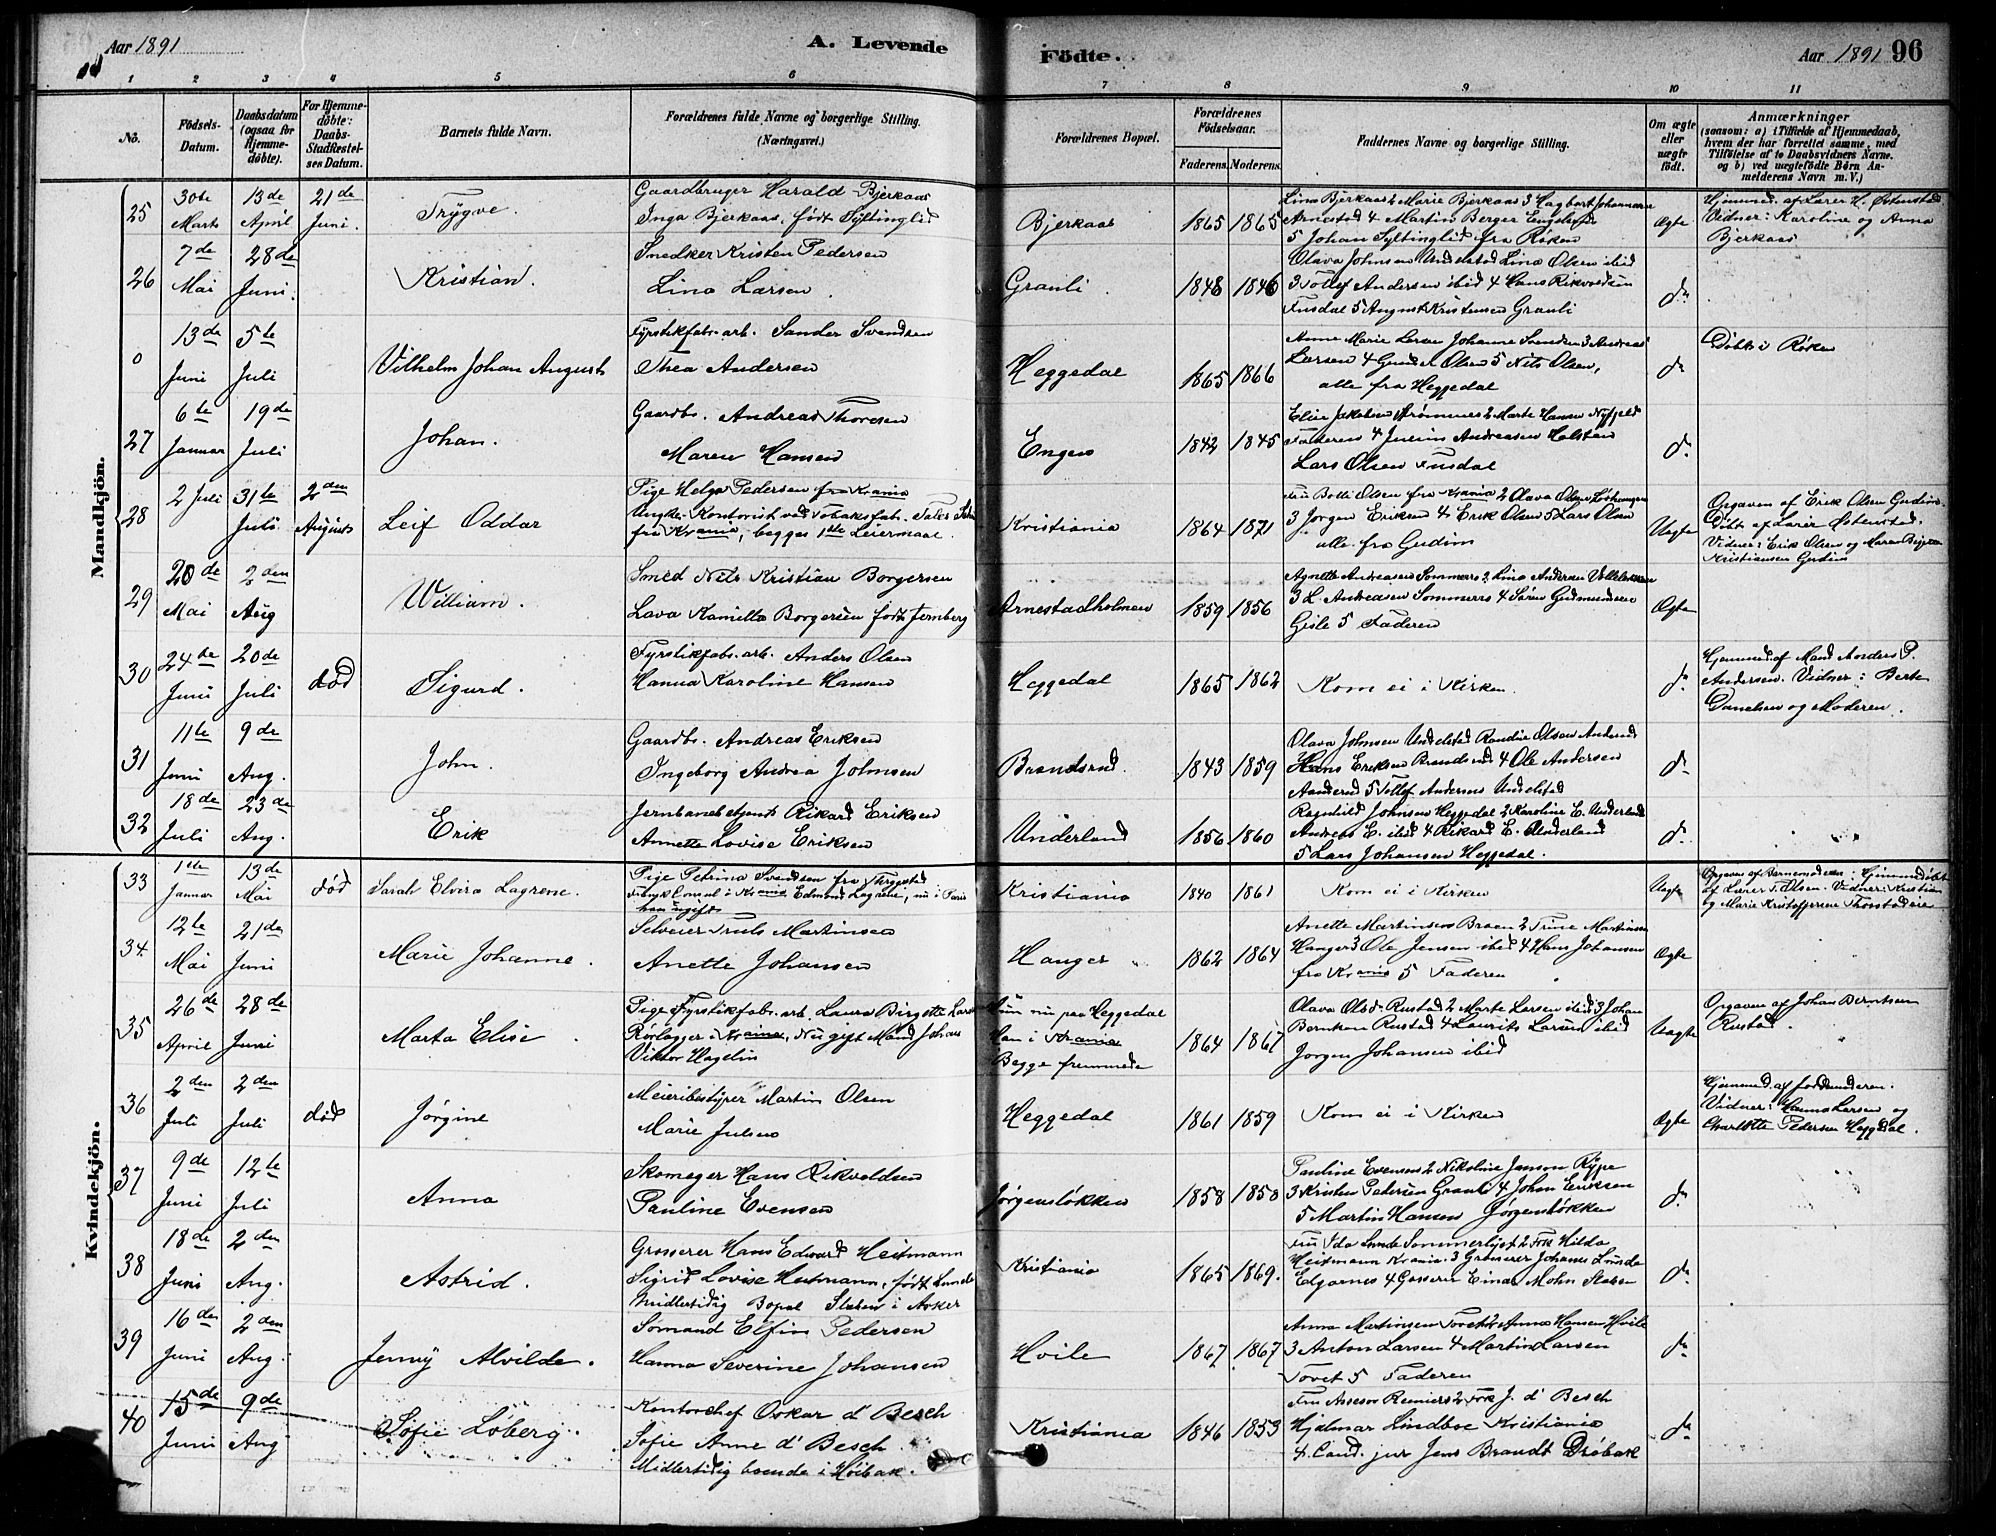 Aar 1891
A. Levende
Födte.
Aar 1891 96
1 2 3 4 5 6 7 8 9 10 11
No.
Födsels-Datum.
Daabsdatum (ogsaa for Hjemme-döbte).
For Hjemme-döbte: Daabs-Stadfæstel-ses Datum.
Barnets fulde Navn.
Forældrenes fulde Navne og borgerlige Stilling.
(Næringsvei.)
Forældrenes Bopæl.
Forældrenes Födselsaar.
Faderens. Moderens.
Faddernes Navne og borgerlige Stilling.
Om ægte eller uægte födt.
Anmærkninger
(saasom: a) i Tilfælde af Hjemmedaab, hvem der har forrettet samme, med Tilföielse af to Daabsvidners Navne. og b) ved uægtefödte Børn An-melderens Navn m. V.)
Mandkjön.
25 30te Marts 13de April 21de Juni. Trygve.
Gaardbruger Harald Bjerkaas
Inga Bjerkaas, født Syltinglid
Bjerkaas 1865 1865
Lina Bjerkaas 2 Marie Bjerkaas 3 Hagbart Johannesen
Arnestad 4 Martin Berger Engelsrud
5 Johan Syltinglid fra Røken
Ægte
Hjemmed. af Lærer H. Østenstad
Vidner: Karoline og Anna
Bjerkaas
26 7de Mai 28de Juni. Kristian.
Snedker Kristen Pedersen
Lina Larsen
Grauli 1848 1846
Olava Johnsen Undelstad Lina Olsen ibid
3 Tollef Andersen ibid 4 Hans Rikvoldsen
Fusdal 5 August Kristensen Grauli
do
0 13de Juni 5te Juli Vilhelm Johan August
Fyrstikfabr. arb. Sander Svendsen
Thea Andersen
Heggedal 1865 1866
Anne Marie Larsen Johanne Svendsen 3 Andreas
Larsen 4 Gunder Olsen 5 Nils Olsen,
alle fra Heggedal
do
Døbt i Røken
27 6te Januar 19de Juli Johan.
Gaardbr. Andreas Thoresen
Maren Hansen
Engen 1842 1845
Faderen 4 Julius Andreasen Holstad
Lars Olsen Fusdal
do
28 2 Juli 31te Juli 2den August Leif Oddar
Pige Helga Pedersen fra Krania
fra Krania, begges 1ste Leiermaal.
Kristiania 1864 1871
3 Jørgen Eriksen 4 Erik Olsen 5 Lars Olsen
alle fra Gudim
Uægte
Opgaven af Erik Olsen Gudim.
Døbt af Lærer Østenstad.
Vidner: Erik Olsen og Maren Birgitte
Kristiansen Gudim
29 20de Mai 2den Aug William.
Smed Nils Kristian Borgersen
Lava Kamilla Borgersen født Jernberg
Arnestadholmen 1859 1856
3 L. Andreasen Sommerro 4 Søren Gudmundsen
Gisle 5 Faderen
Ægte
30 24de Juni 20de Juli død Sigurd.
Fyrstikfabr. arb. Anders Olsen
Hanna Karoline Hansen
Heggedal 1865 1862
Kom ei i Kirken.
do
Hjemmed. af Mand Anders P.
Andersen. Vidner: Berte
Danelsen og Moderen.
31 11te Juni 9de Aug. John.
Gaardbr. Andreas Eriksen
Ingeborg Andrea Johnsen
Brendsrud. 1843 1859
Olava Johnsen Undelstad Randie Olsen Anderud
Hans Eriksen Brendsrud 4 Ole Andersen
Aanderud 5 Tollef Andersen Undelstad
do
32 18de Juli 23de Aug. Erik
Jernbanebetjent Rikard Eriksen
Annette Lovise Eriksen
Underland 1856 1860
Ragnhild Johnsen Heggedal 2 Karoline E. Underland
Andreas E. ibid 4 Rikard E. Underland
5 Lars Johansen Heggedal.
do
Kvindekjön.
33 1ste Januar 13de Mai død Sarah Elvira Lagrene.
Pige Petrina Svendsen fra
Kristiania 1840 1861
Kom ei i Kirken
Uægte
Opgaven af Barnemoderen. Hjemmedøbt
af Lærer T. Olsen. Vidner: Kristian
og Marie Kristoffersen Thorstadeie
34. 12te Mai 21de Juni Marie Johanne.
Selveier Truls Martinsen
Anette Johansen
Hanger 1862 1864
Anette Martinsen Braen 2 Trine Martinsen
Hanger 3 Ole Jensen ibid 4 Hans Johansen
fra Krania 5 Faderen
Ægte
35 26de April 28de Juni Marta Elise
Pige Fyrstikfabr. arb. Laura Birgitte Larsen
Rørlægger i Krania, Nu gift Mand Johan
Viktor Hagelin
Hun nu paa Heggedal
Han i Krania
Begge fremmede
1864 1867
Olava Olsd. Rustad 2 Marte Larsen ibid 3 Johan
Berntsen Rustad 4 Laurits Larsen ibid
Jørgen Johansen ibid
Uægte
Opgaven af Johan Berntsen
Rustad.
36 2den Juli 2den Juli død Jørgine
Meieribestyrer Martin Olsen
Marie Julsen
Heggedal 1861 1859
Kom ei i Kirken
Ægte
Hjemmed. af Jordemoderen.
Vidner: Hanna Larsen og
Charlotte Pedersen Heggedal.
37 9de Juni 12te Juli Anna
Skomager Hans Rikvoldsen
Pauline Evensen
Jørgensløkken 1858 1850
Pauline Evensen 2 Nikoline Jansen Rype
3 Kristen Pedersen Grauli 4 Johan Eriksen
5 Martin Hansen Jørgensløkken
do
38 18de Juni 2den Aug. Astrid.
Grosserer Hans Edward Heitmann
Sigrid Lovise Heitmann, født Lunde
Midlertidig Bopæl Slæben i Asker
Kristiania 1865 1869.
Fru Ida Lunde Sommerlyst 2 Frk Hilda
Heitmann Krania 3 Grosserer Johannes Lunde
do
39 16de Juni 2den Aug. Jenny Alvilde.
Sømand Elfin Pedersen
Hanna Severine Johansen
Hvile 1867 1867
Anna Martinsen Tovet 2 Anna Hansen Hvile
3 Anton Larsen 4 Martin Larsen
Tovet 5 Faderen
do
40 15de Juni 9de Aug Sofie Løberg.
Kontorchef Oskar d' Besch
Sofie Anne d' Besch
Midlertidig boende i Høibak.
Kristiania 1846 1853
Fru Assesor Reimers 2 Frk J. d' Besch
Hjalmar Lindboe Kristiania
4. Cand. jur Jens Brandt Drøbak
do